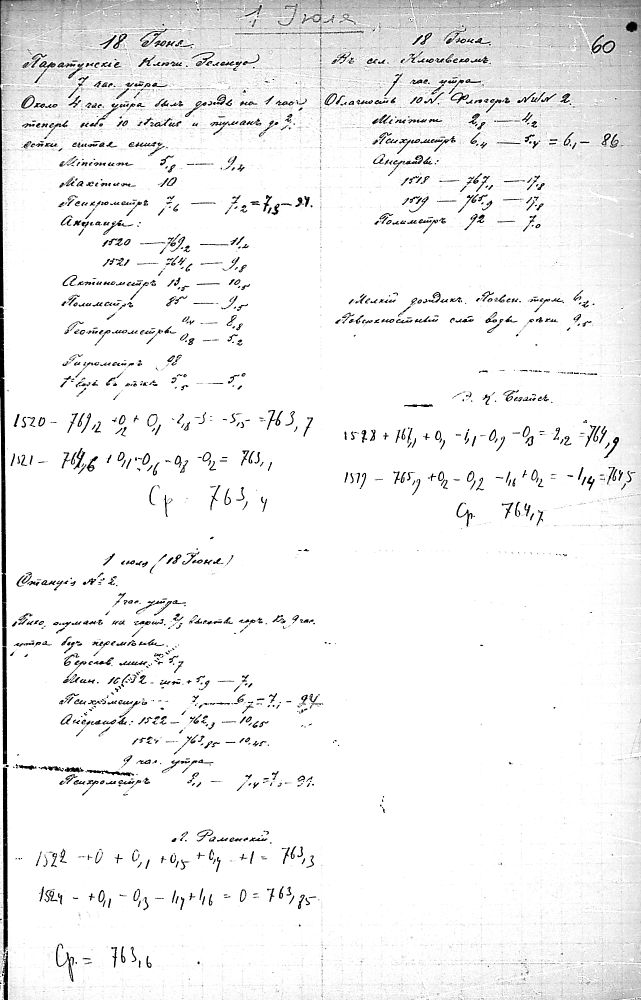 1 Июля
60
18 Июня.
Паратунскіе Ключи. Зеленцо
7 час. утра
Около 4 час. утра былъ дождь на 1 час
теперь небо 10 stratus и туманъ до 2/3
сопки, считая снизу.
Minimum 5,8 — 9,4
Maximum 10
Психрометръ 7,6 — 7,2 = 7,3 — 94.
Анероиды:
1520 — 769,2 — 11,2
1521 — 764,6 — 9,8
Актинометръ 13,5 — 10,5
Полиметръ 85 — 9,5
Геотермометры 0,4 — 8,8
0,8 — 5,2
Гигрометръ 98
t° воды въ рѣкѣ 5,5° — 5,1°
1520 — 769,2 +0,2 + 0,1 - 2,8 -3 = -5,5 = 763,7
1521 — 764,6 + 0,1 -0,6 -0,8 -0,2 = 763,1
Ср. 763,4
18 Июня.
Въ сел. Ключевскомъ.
7 час. утра
Облачность 10 N. Флюгеръ NWN 2.
Minimum 2,8 — 4,2
Психрометръ 6,4 — 5,4 = 6,1 — 86
Анероиды:
1518 — 767,1 — 17,8
1519 — 765,9 — 17,8
Полиметръ 92 — 7,0
Мелкій дождикъ. Почвен. терм. 6,2.
Поверхностный слой воды рѣки 9,5.
1518 + 767,1 + 0,1 -1,1 -0,9 -0,3 = 2,2 = 764,9
1519 — 765,9 +0,2 -0,2 -1,6 +0,2 = -1,4 = 764,5
Ср. 764,7
1 июля (18 Июня)
Станція № 2.
7 час. утра.
Тихо, туманъ на гориз. 2/3 высоты горъ. Въ 9 час.
утра безъ перемѣны.
мин. 5,7
Мин. 16632 шт. + 5,9 — 7,1
Психрометръ 7,1 — 6,7 = 7,1 — 94
Анероиды: 1522 — 762,3 — 10,65
1524 — 763,85 — 10,45.
9 час. утра
Психрометръ 8,1 — 7,4 = 7,3 — 91.
Л. Раменскій.
1522 - +0 + 0,1 + 0,5 + 0,4 +1 = 763,3
1524 - +0,1 - 0,3 - 1,4 + 1,6 = 0 = 763,85
Ср. = 763,6